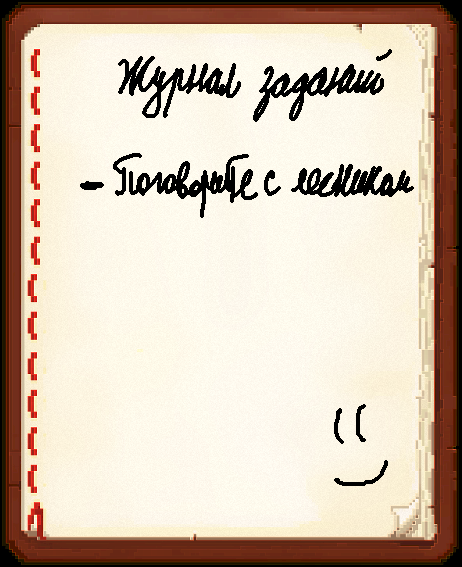 Журнал заданий
- Поговорите с лесником